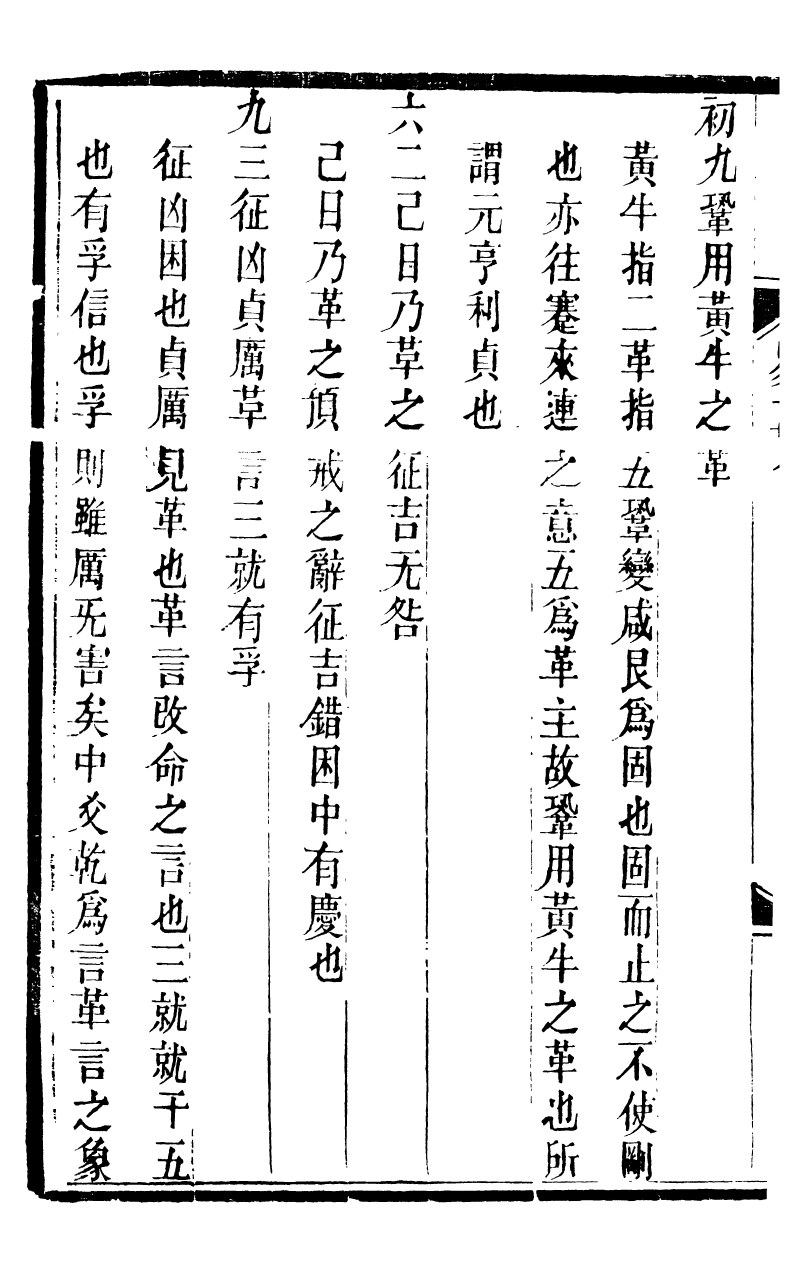 初九鞏用黃牛之革
黃牛指二革指五鞏變咸艮爲固也固而止之不使剛
也亦往蹇來連之意五爲革主故鞏用黃牛之革也所
謂元亨利貞也
六二己日乃革之征吉无咎
己日乃革之順戒之辭征吉錯困中有慶也
九三征凶貞厲革言三就有孚
征凶困也貞厲見革也革言改命之言也三就就于五
也有孚信也孚則雖厲旡害矣中爻乾爲言革言之象